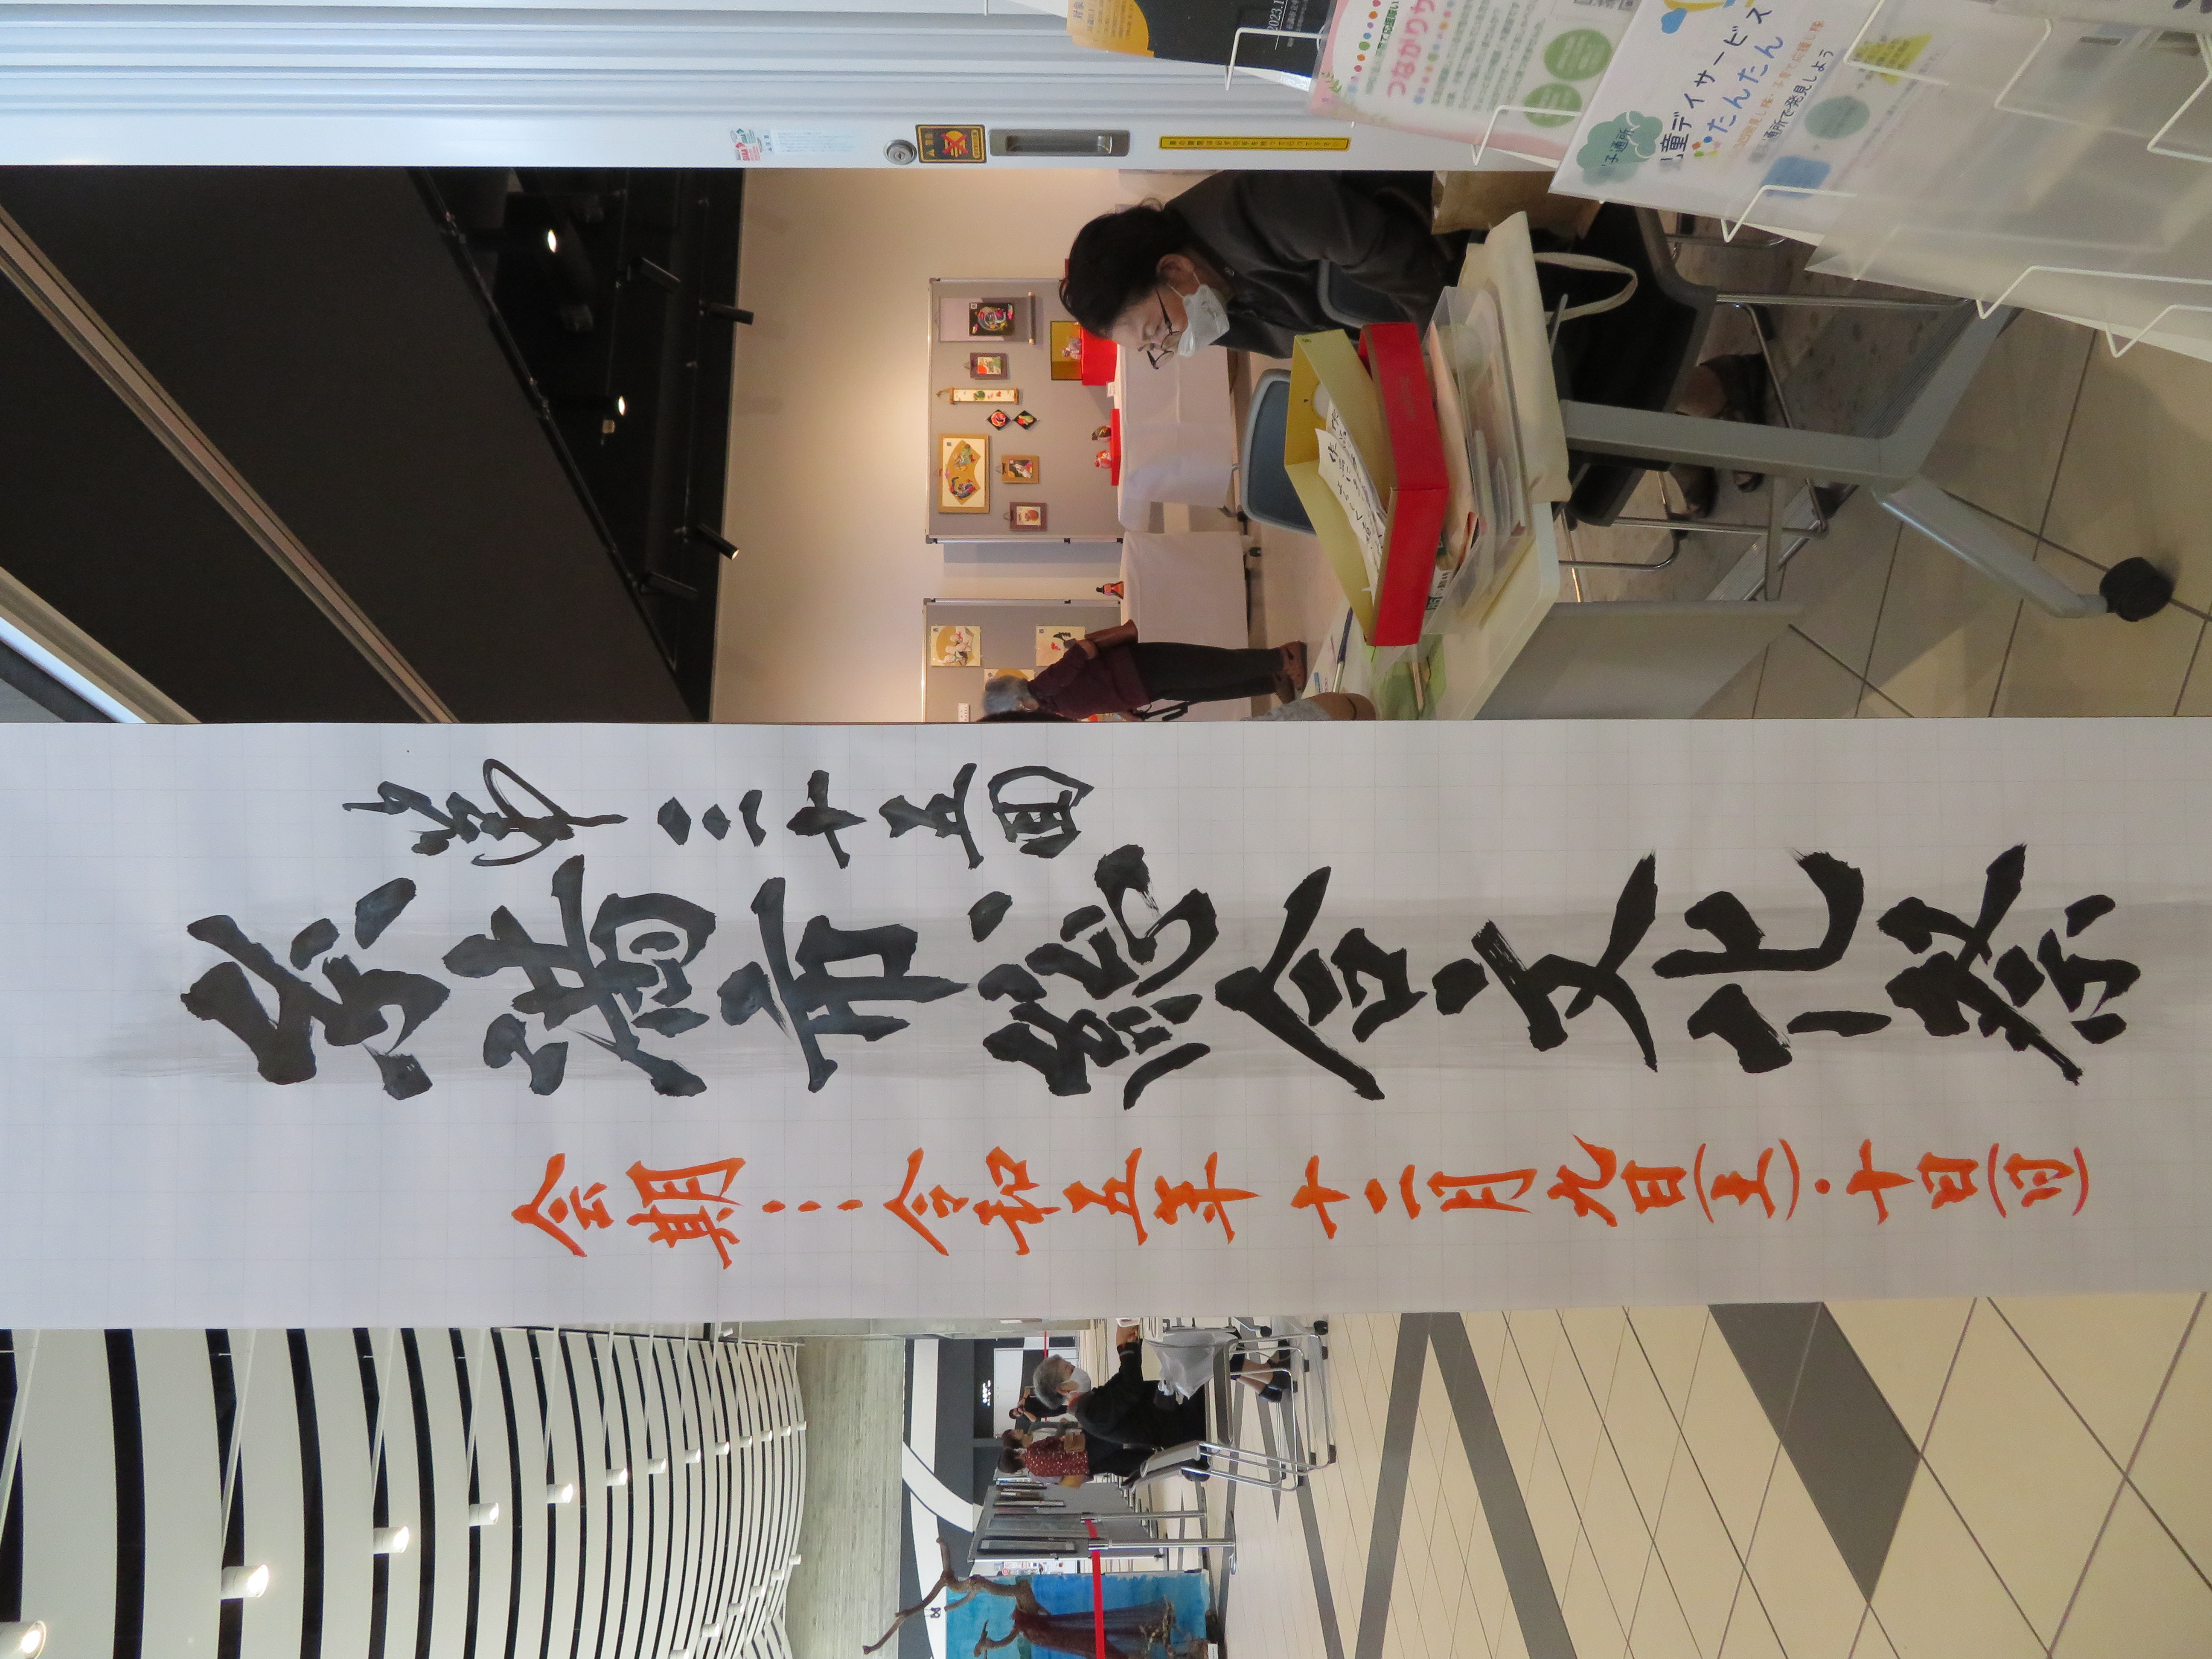 第三十五回
糸満市総合文化祭
会期…令和五年十二月九日(土)・十日(日)
つながりサ
童デイサービス
たんたん
通所で発見しよう
2023.1